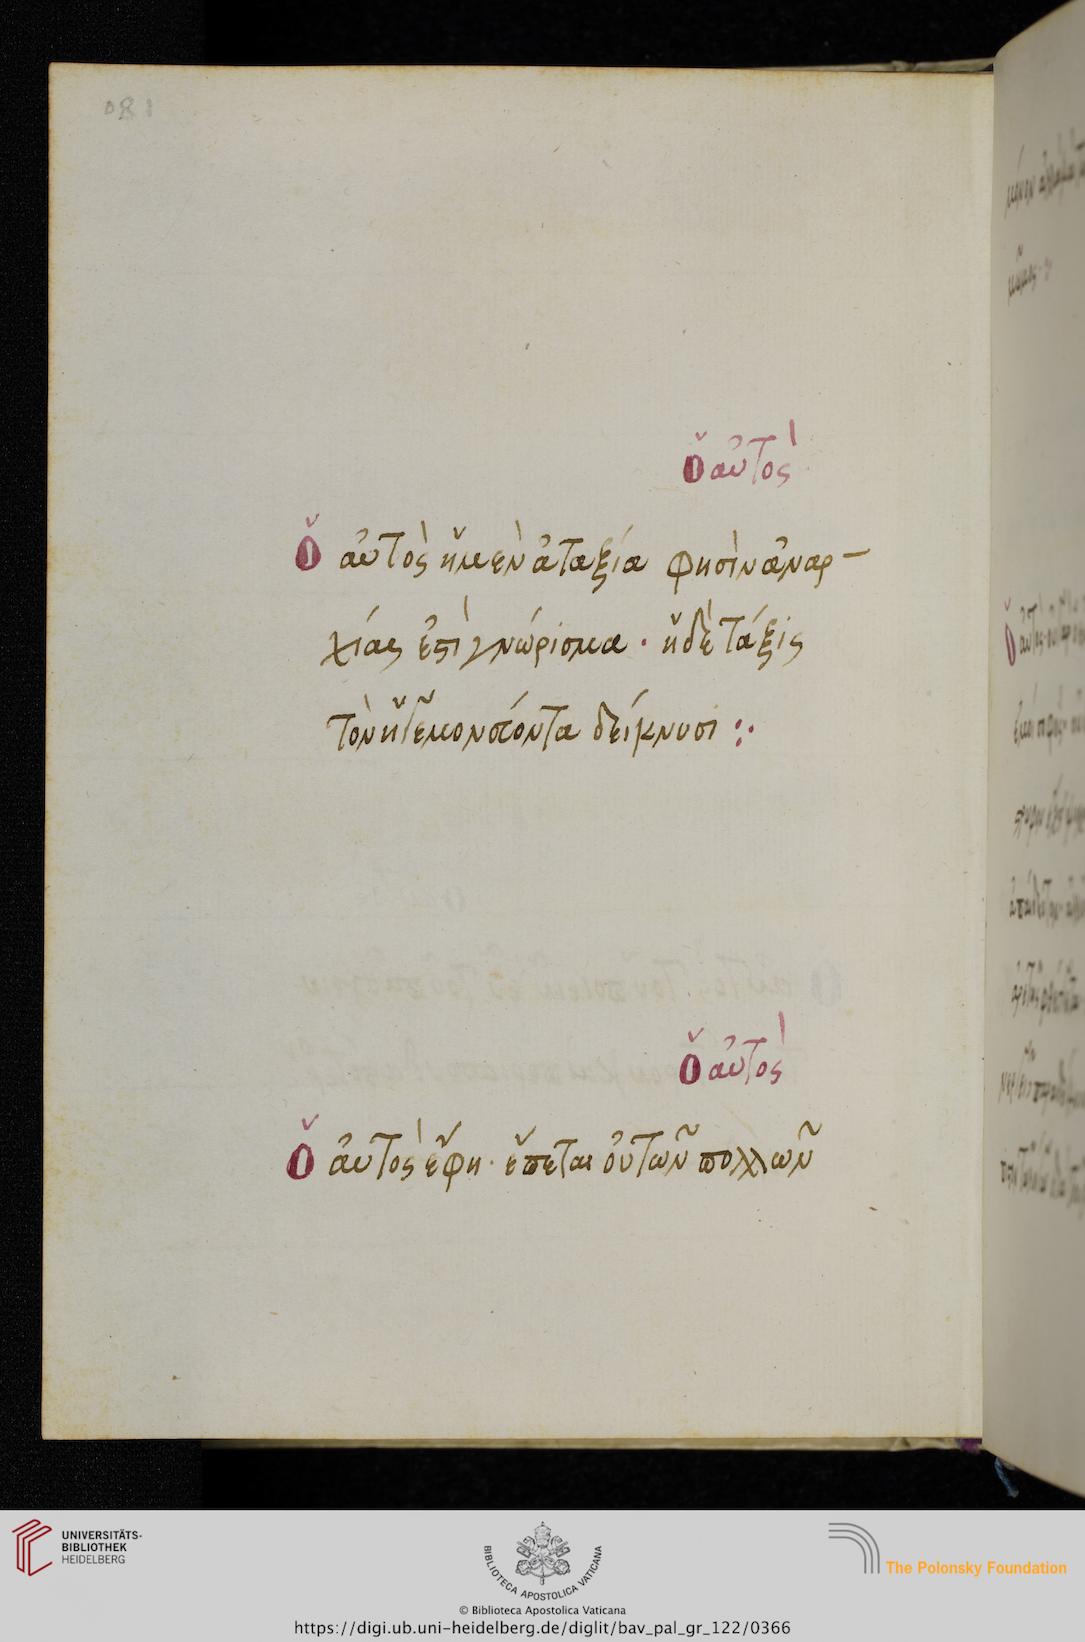 180
Ὁ αὐτὸς
Ὁ αὐτὸς ἡ μὲν ἀταξία φησὶν ἀναρ-
χίας ἐπὶ γνώρισμα · ἡ δὲ τάξις
τὸν ἡγεμονεύοντα δείκνυσι :·
Ὁ αὐτὸς
Ὁ αὐτὸς ἔφη · ἕπεται οὐ τῶν πολλῶν
UNIVERSITÄTS-
BIBLIOTHEK
HEIDELBERG
BIBLIOTECA APOSTOLICA VATICANA
The Polonsky Foundation
© Biblioteca Apostolica Vaticana
https://digi.ub.uni-heidelberg.de/diglit/bav_pal_gr_122/0366